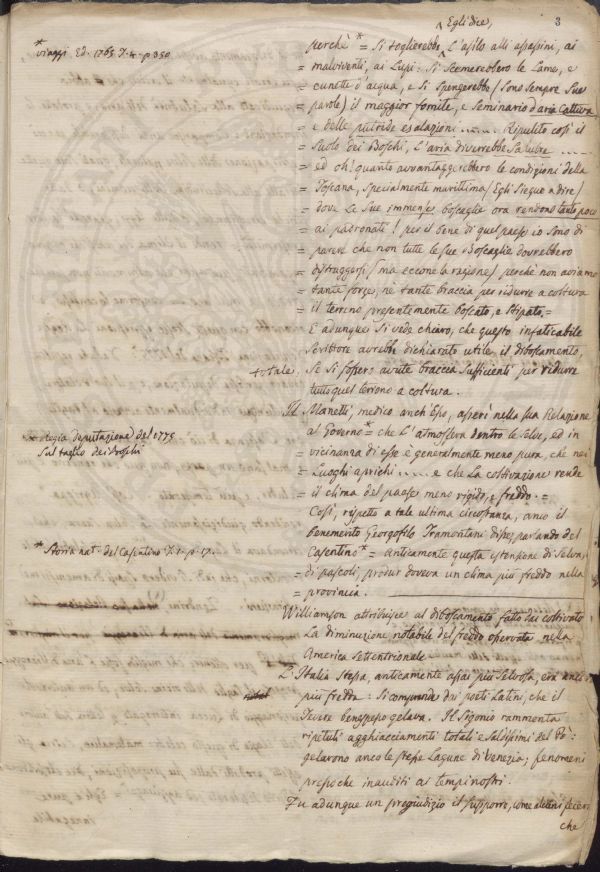 Egli dice, 3
* viaggi Ed. 1768 T. 4. p 350
perchè * = Si toglierebbe L'asilo alli assassini, ai
= malviventi, ai Lupi: Si scemerebbero le Lame, e
= cunette d'acqua, e si spengerebbe (sono sempre sue
= parole) il maggior fomite, e seminario d'aria Cattiva
= e delle putride esalazioni ...... Ripulito così il
= suolo dei Boschi, L'aria diverrebbe salubre .....
= ed oh! quanto avvantaggerebbero le condizioni della
= Toscana, specialmente marittima (Egli siegue a dire)
= dove Le sue immense boscaglie ora rendono tanto poco
= ai padronati! per il bene di quel paese io sono di
= parere che non tutte le sue Boscaglie dovrebbero
= distruggersi (ma eccone la ragione) perchè non abbiamo
= tante forze, nè tante braccia per ridurre a coltura
= il terreno presentemente boscato, e stipato. =
E adunque si vede chiaro, che questo infaticabile
Scrittore avrebbe dichiarato utile, il diboscamento,
totale, se si fossero avute braccia sufficienti per ridurre
tutto quel terreno a coltura.
Il Manetti, medico anch'esso, asserì nella sua Relazione
* Regia Deputazione del 1775
Sul taglio dei Boschi
al Governo * = che L'atmosfera dentro le selve, ed in
= vicinanza di esse è generalmente meno pura, che nei
= Luoghi aprichi ..... e che La coltivazione rende
= il clima del paese meno rigido, e freddo. =
Così, rispetto a tale ultima circostanza, anco il
benemerito Georgofilo Tramontani disse, parlando del
* Storia nat. del Casentino T. 1. p. 17.
Casentino * = Anticamente questa estensione di Selva,
= di pascoli, produr doveva un clima più freddo nella
= provincia.
Williamson attribuisce al diboscamento fatto dai coltivatori
La diminuzione notabile del freddo osservata nella
America Settentrionale
L'Italia stessa, anticamente assai più selvosa, era anco
più fredda: si comprende dai poeti Latini, che il
Tevere bene spesso gelava. Il Sigonio rammenta
ripetuti agghiacciamenti totali e saldissimi del Pò:
gelarono anco le stesse Lagune di Venezia; fenomeni
pressochè inauditi ai tempi nostri.
Fu adunque un pregiudizio il supporre, come alcuni fecero
che